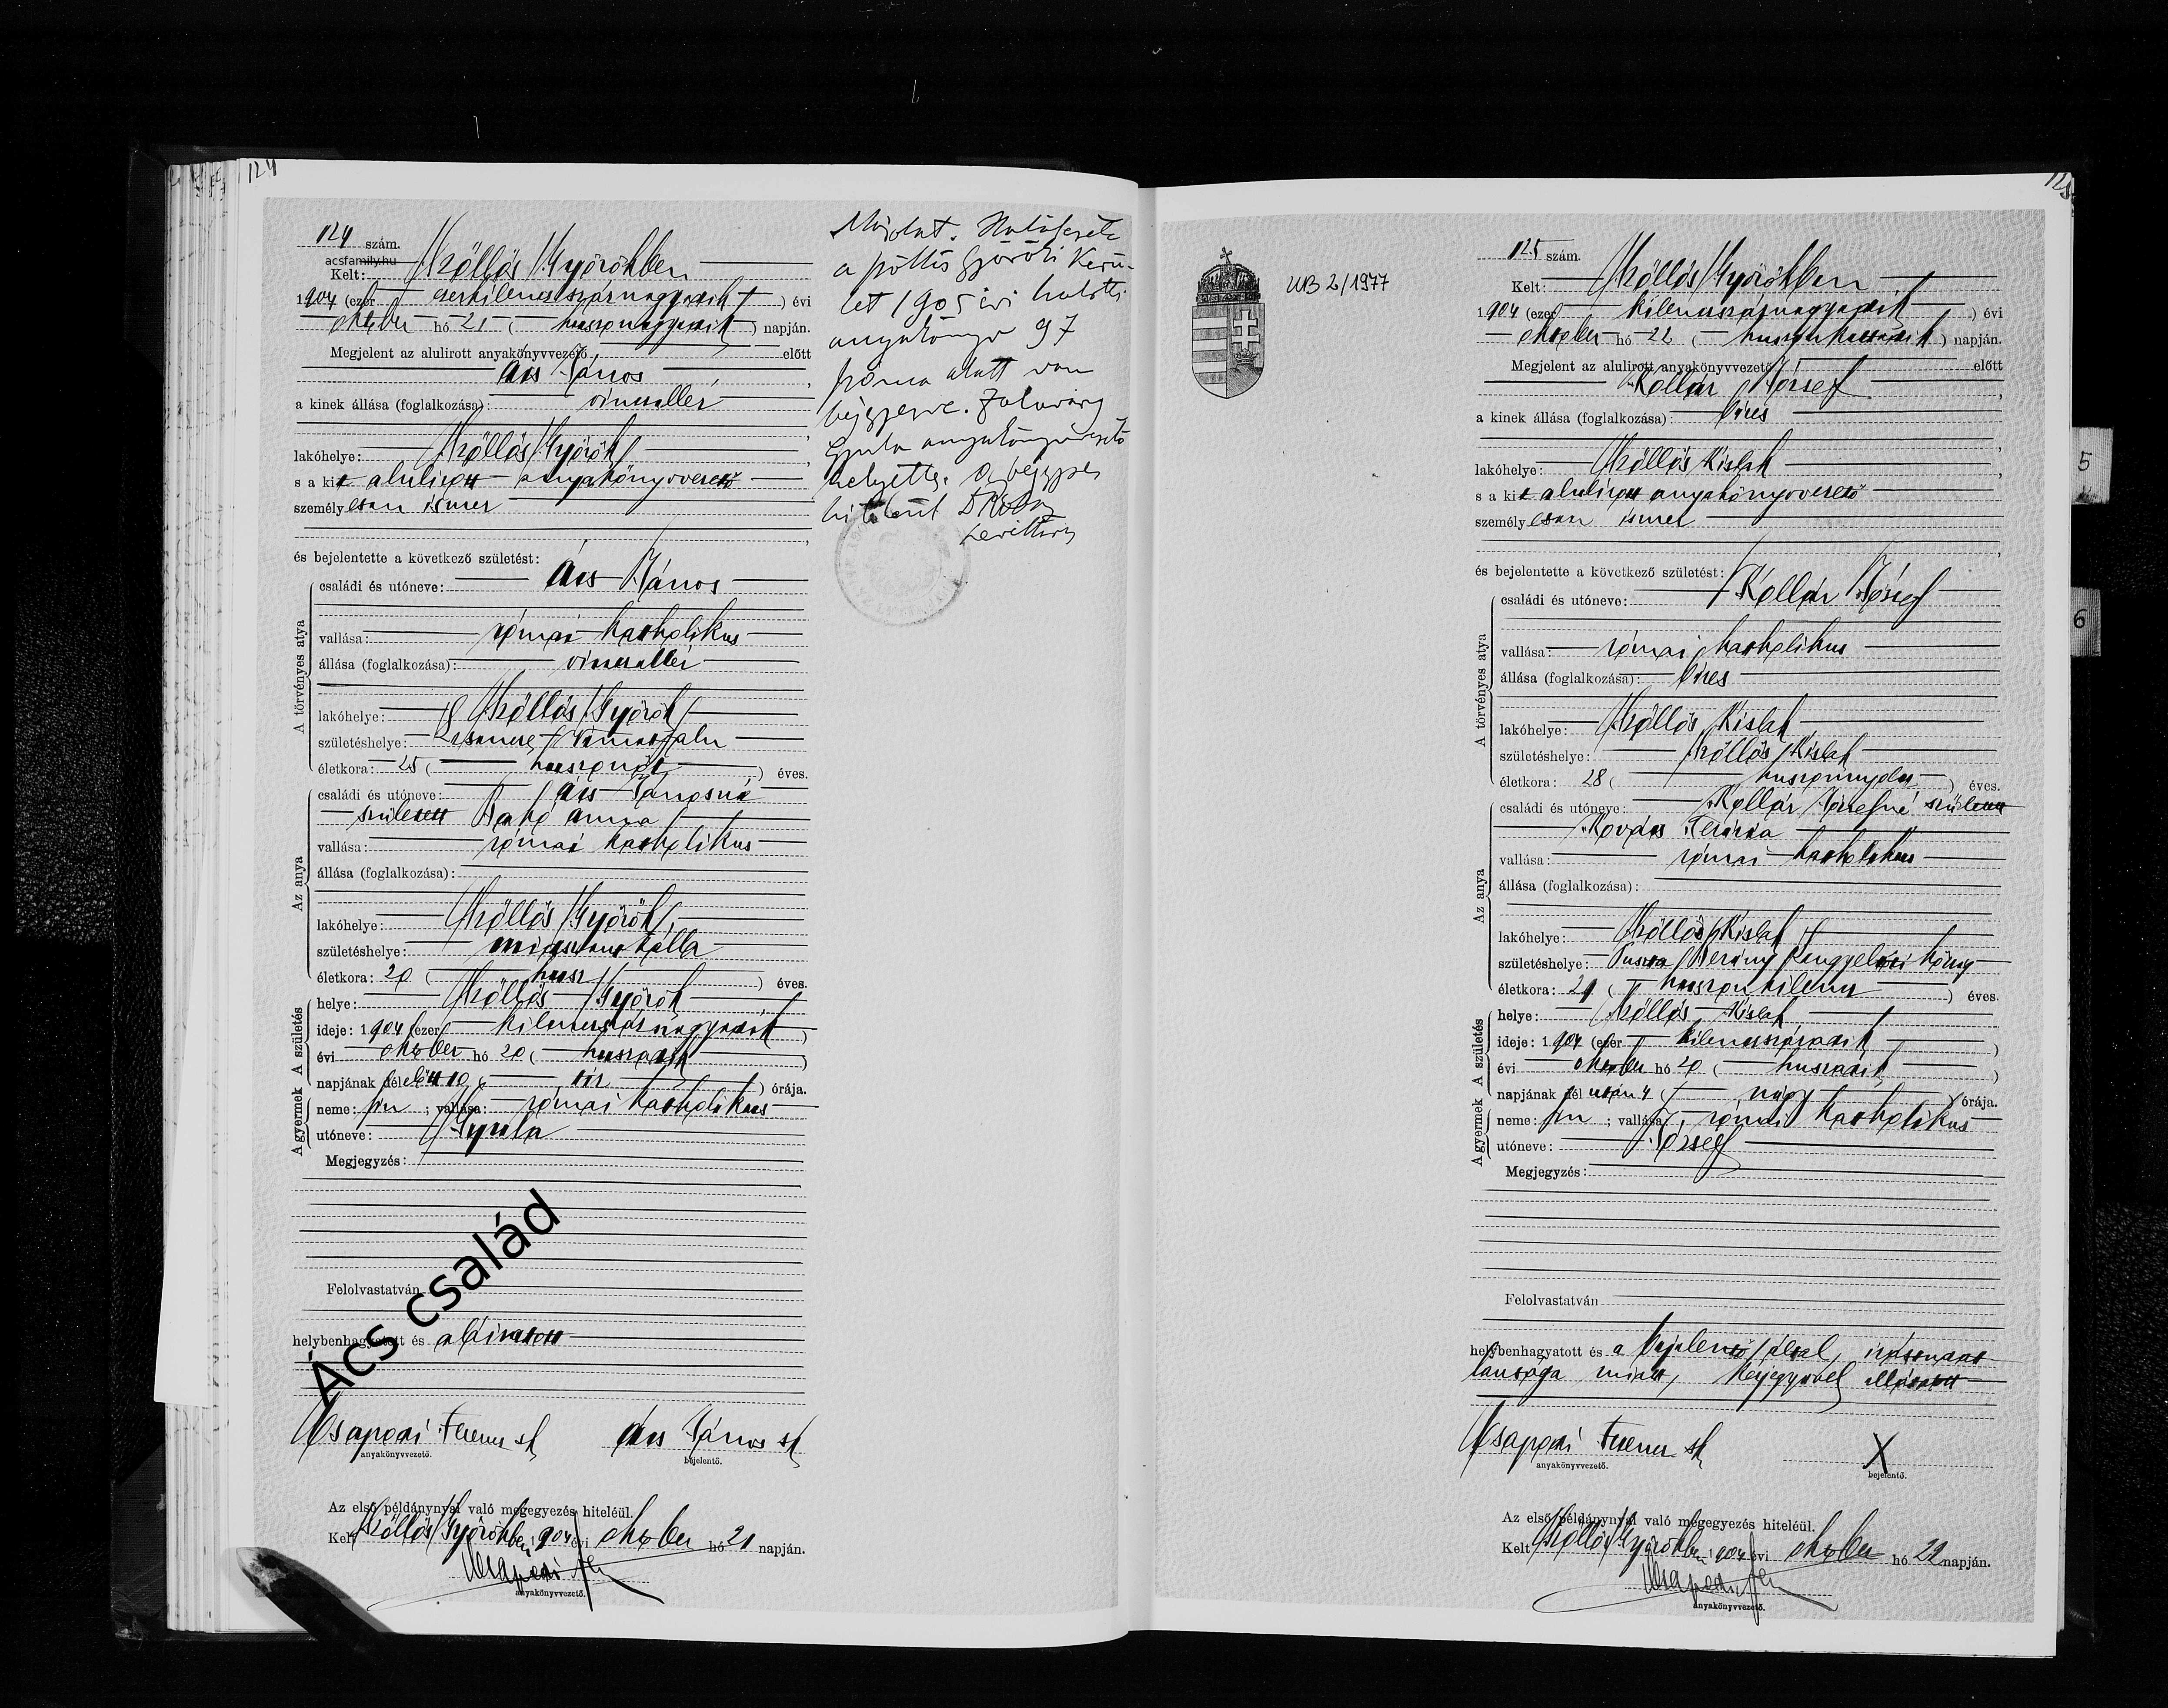 124
124 szám.
acsfamily.hu
Kelt: Szőllős Györökben
1904 (ezer ezerkilencszáznegyedik) évi
október hó 21 (huszonegyedik) napján.
Megjelent az alulirott anyakönyvvezető előtt
Ács János
a kinek állása (foglalkozása): vinczellér
lakóhelye: Szőllős Györök
s a kit alulirott anyakönyvvezető
személyesen ismer
és bejelentette a következő születést:
A törvényes atya
családi és utóneve: Ács János
vallása: római katholikus
állása (foglalkozása): vinczellér
lakóhelye: Szőllős Györök
születéshelye: Vámosfalu
életkora: 25 (huszonöt) éves.
Az anya
családi és utóneve: Ács Jánosné
született Bakó Anna
vallása: római katholikus
állása (foglalkozása):
lakóhelye: Szőllős Györök
születéshelye:
életkora: 20 (husz) éves.
A születés
helye: Szőllős Györök
ideje: 1904 (ezer kilencszáznegyedik)
évi október hó 20 (huszadik)
napjának délelőtt 10 (tíz) órája.
A gyermek
neme: fiu; vallása: római katholikus
utóneve: Gyula
Megjegyzés:
Ács család
Felolvastatván
helybenhagyatott és aláiratott
Csapodi Ferencz sk
anyakönyvvezető.
Ács János sk
bejelentő.
Az első példánynyal való megegyezés hiteléül.
Kelt Szőllős Györökben, 1904 évi október hó 21 napján.
Csapodi
anyakönyvvezető.
Másolat. Halálesete
a szőllős györöki kerü-
let 1905 évi halotti
anyakönyv 97
száma alatt van
bejegyezve. Zalavári
Gyula anyakönyvvezető
helyettes. A bejegyzés
hiteléül
125
UB 2/1977
125 szám.
Kelt: Szőllős Györökben
1904 (ezer kilencszáznegyedik) évi
október hó 22 (huszonkettedik) napján.
Megjelent az alulirott anyakönyvvezető előtt
Kollár József
a kinek állása (foglalkozása): béres
lakóhelye: Szőllős Kislak
s a kit alulirott anyakönyvvezető
személyesen ismer
és bejelentette a következő születést:
A törvényes atya
családi és utóneve: Kollár József
vallása: római katholikus
állása (foglalkozása): béres
lakóhelye: Szőllős Kislak
születéshelye: Szőllős Kislak
életkora: 28 (huszonnyolcz) éves.
Az anya
családi és utóneve: Kollár Józsefné született
Kovács Terézia
vallása: római katholikus
állása (foglalkozása):
lakóhelye: Szőllős Kislak
születéshelye: Puszta Berény Lengyeltóti község
életkora: 29 (huszonkilencz) éves.
A születés
helye: Szőllős Kislak
ideje: 1904 (ezer
évi október hó 20 (huszadik)
napjának dél után 4 (négy) órája.
A gyermek
neme: fiu; vallása: római katholikus
utóneve: József
Megjegyzés:
Felolvastatván
helybenhagyatott és a bejelentő által, irástudat-
lansága miatt, kézjegyével elláttatott
Csapodi Ferencz sk
anyakönyvvezető.
X
bejelentő.
Az első példánynyal való megegyezés hiteléül.
Kelt Szőllős Györökben 1904 évi október hó 22 napján.
Csapodi
anyakönyvvezető.
5
6